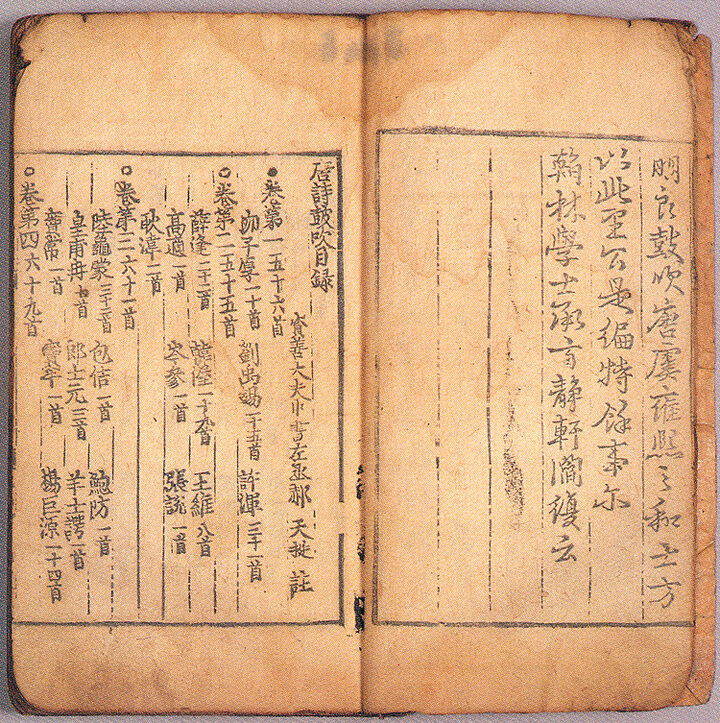 明良鼓吹唐虞雍熙之和士方
以此望公是編特餘事尓
翰林學士承旨靜軒閻復云
唐詩鼓吹目録
資善大夫中書左丞郝天挺註
●卷第一五十六首
柳子厚一十首 劉禹錫二十五首 許渾二十一首
○卷第二五十五首
薛逢二十二首 一十九首 王維八首
高適一首 岑參一首 張說一首
耿湋一首
○卷第三六十一首
陸龜蒙三十五首 包佶一首 鮑防一首
皇甫冉首 郎士元三首 羊士諤一首
竇常一首 竇牟一首 楊巨源一十四首
○卷第四六十九首